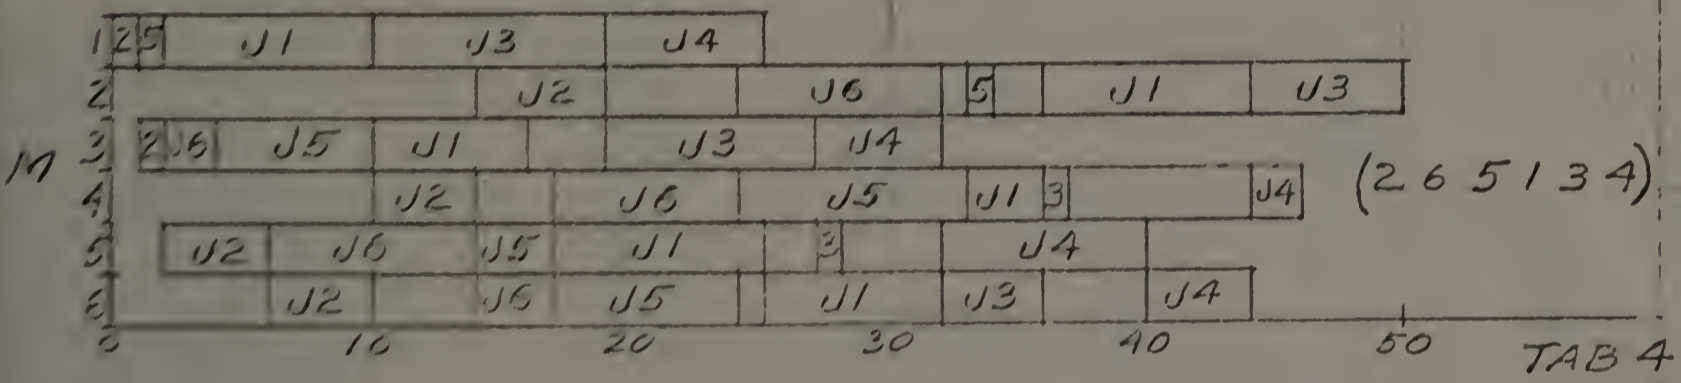 1 2 5 J1 J3 J4
2 J2 J6 5 J1 J3
3 2 J6 J5 J1 J3 J4
M
4 J2 J6 J5 J1 3 J4 (2 6 5 1 3 4)
5 J2 J6 J5 J1 3 J4
6 J2 J6 J5 J1 J3 J4
0 10 20 30 40 50 TAB 4